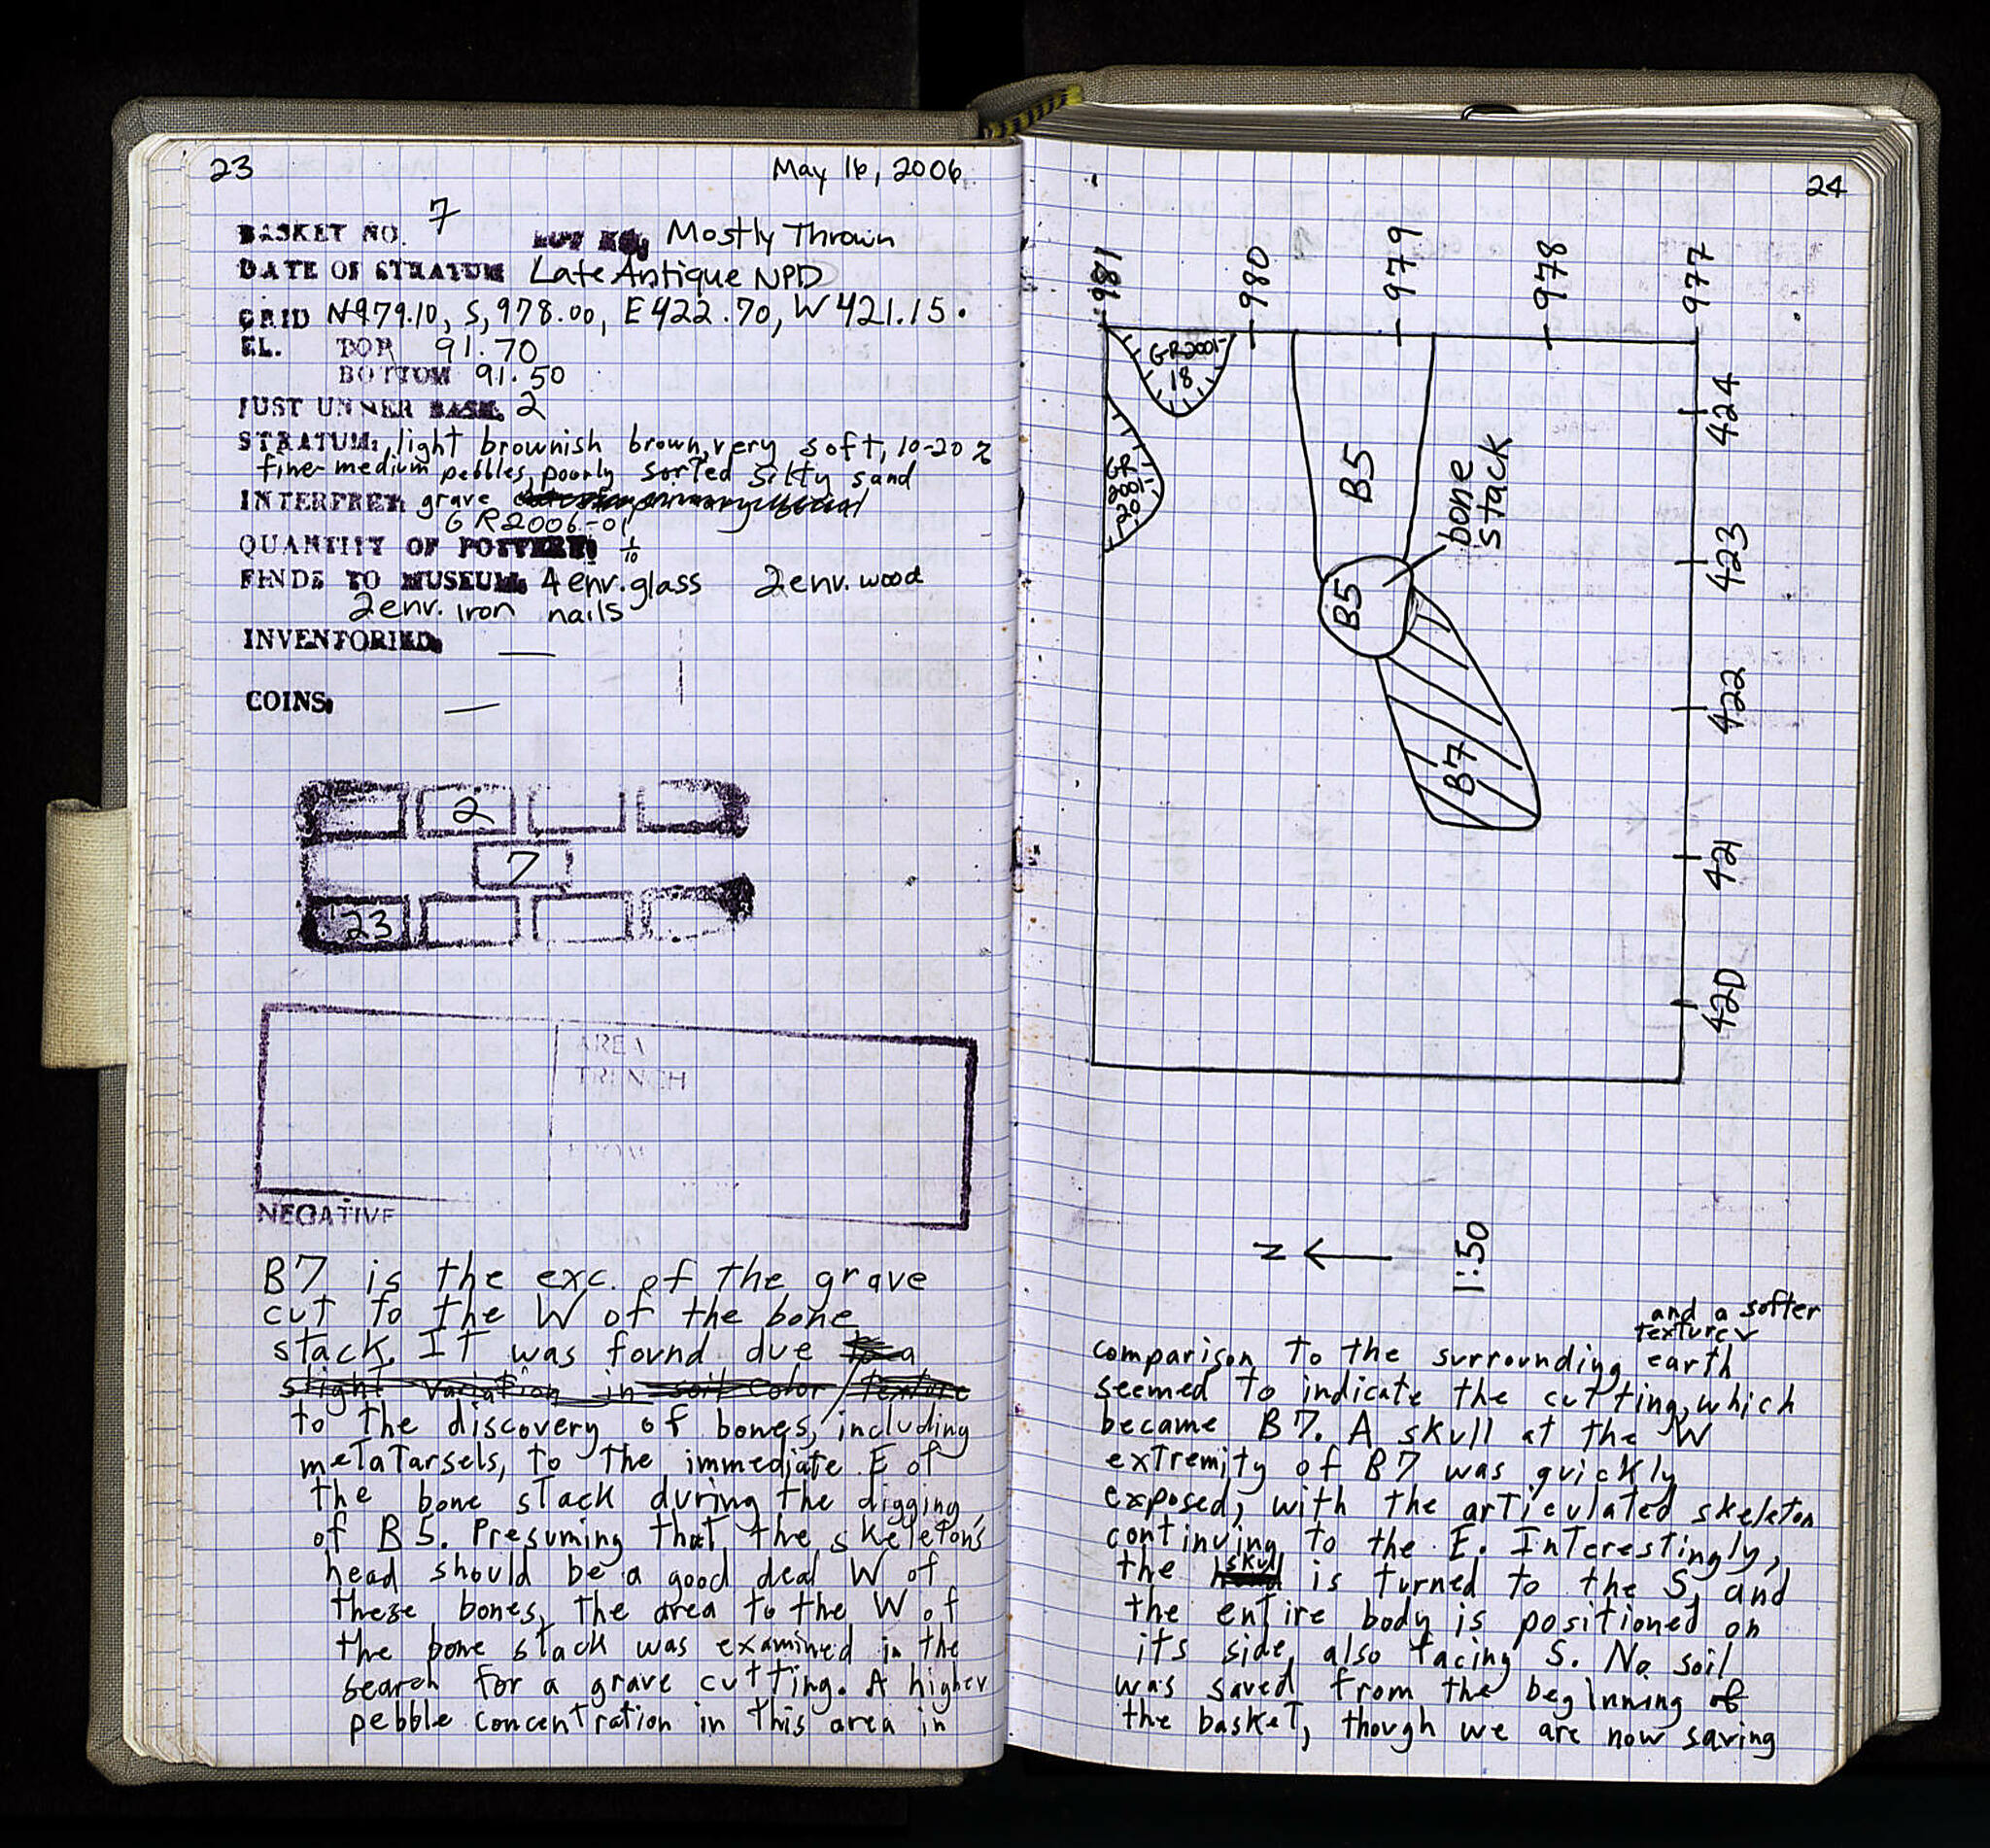 23
May 16, 2006
BASKET NO. 7 LOT NO. Mostly Thrown
DATE OF STRATUM Late Antique NPD
GRID N979.10, S,978.00, E422.70, W421.15.
EL. TOP 91.70
BOTTOM 91.50
JUST UNDER BASK. 2
STRATUM: light brownish brown, very soft, 10-20%
fine-medium pebbles, poorly sorted silty sand
INTERPRET. grave
GR2006-01
QUANTITY OF POTTERY: 1/10
FINDS TO MUSEUM. 4 env. glass 2 env. wood
2 env. iron nails
INVENTORIED. —
COINS. —
2
7
23
AREA
TRENCH
FROM
NEGATIVE
B7 is the exc. of the grave
cut to the W of the bone
stack. It was found due
slight variation in soil color / texture
to the discovery of bones, including
metatarsels, to the immediate E of
the bone stack during the digging
of B5. Presuming that the skeleton's
head should be a good deal W of
these bones, the area to the W of
the bone stack was examined in the
search for a grave cutting. A higher
pebble concentration in this area in
24
981
980
979
978
977
GR2001-
18
GR
2001-
20
B5
bone
stack
B5
B7
424
423
422
421
420
N
1:50
and a softer
texture
comparison to the surrounding earth
seemed to indicate the cutting, which
became B7. A skull at the W
extremity of B7 was quickly
exposed, with the articulated skeleton
continuing to the E. Interestingly,
the skull is turned to the S, and
the entire body is positioned on
its side, also facing S. No soil
was saved from the beginning of
the basket, though we are now saving